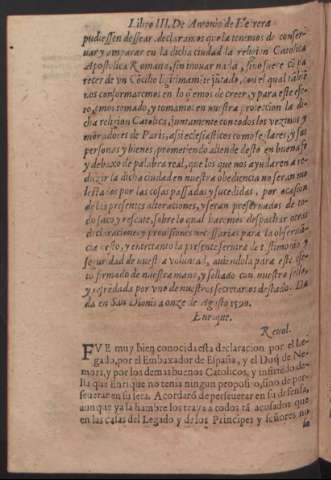 Libro III. De Antonio de Herrera
pudiessen dessear, declaramos que la tenemos de conser-
uar y amparar en la dicha ciudad la religion Catolica
Apostolica Romana, sin inouar nada, sino fuere cō pa
recer de vn Cōcilio legitimamēte jūtado, con el qual tābiē
nos conformaremos en lo q̄ emos de creer, y para este efe-
to, emos tomado, y tomamos en nuestra proteccion la di-
cha religion Catolica, juntamente con todos los vezinos y
moradores de Paris, assi eclesiasticos como seglares, y sus
personas y bienes, prometiendo allende desto en buena fe
y debaxo de palabra real, que los que nos ayudaren a re-
duzir la dicha ciudad en nuestra obediencia no seran mo
lestados por las cosas passadas y sucedidas, por ocasion
de las presentes alteraciones, y seran preseruados de to-
do saco y rescate, sobre lo qual haremos despachar otras
declaraciones y prouisiones necessarias para la obserua-
cia desto, y entretanto la presente seruira de testimonio y
seguridad de nuestra voluntad, auiendola para este efe-
to firmado de nuestra mano, y sellado con nuestro sello,
y refrendada por vno de nuestros secretarios destado. Da
da en San Dionis a onze de Agosto 1590.
Enrique.
Reuol.
FVE muy bien conocida esta declaracion por el Le-
gado, por el Embaxador de España, y el Duq̄ de Ne-
mors, y por los demas buenos Catolicos, y infirieron de-
lla que Enrique no tenia ningun proposito, sino de per-
seuerar en su seta. Acordarō de perseuerar en su defensa,
aunque ya la hambre los traya a todos tā acosados, que
en las casas del Legado y de los Principes y señores, no